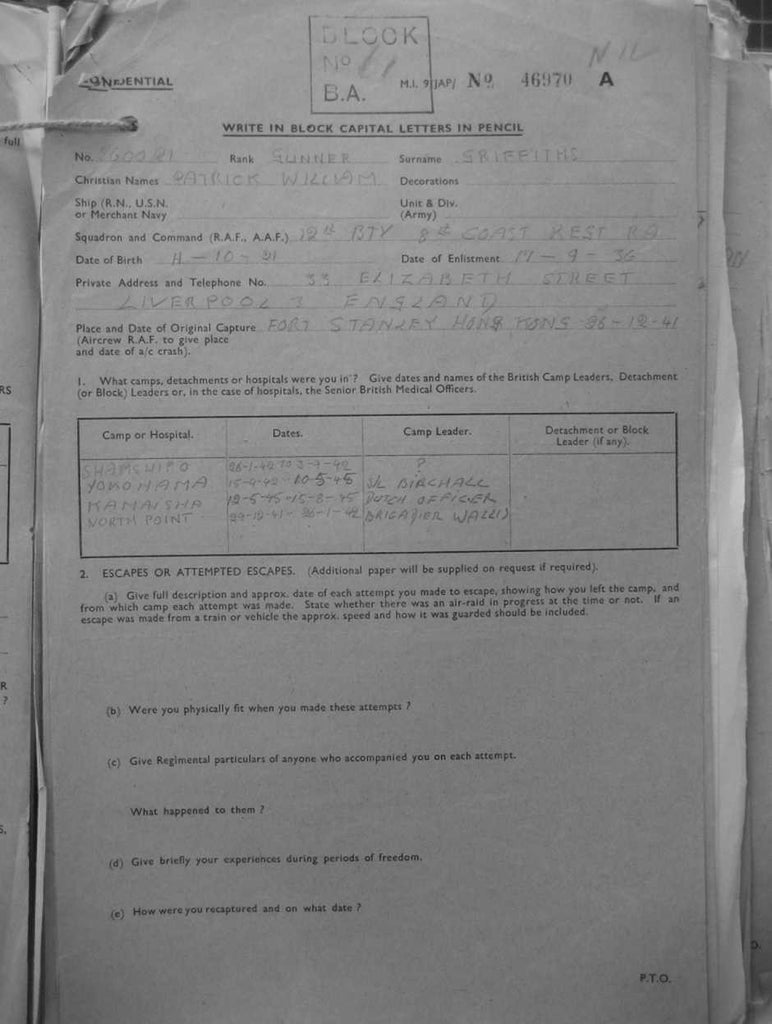 full
BLOCK
No 61
NIL
B.A.
CONFIDENTIAL
M.I. 9/JAP/ No. 46970 A
WRITE IN BLOCK CAPITAL LETTERS IN PENCIL
No. Rank GUNNER Surname GRIFFITHS
Christian Names PATRICK WILLIAM Decorations
Ship (R.N., U.S.N. Unit & Div.
or Merchant Navy (Army)
Squadron and Command (R.A.F., A.A.F.) 12th BTY 8th COAST REGT RA
Date of Birth 11-10-21 Date of Enlistment 17-9-36
Private Address and Telephone No. 33 ELIZABETH STREET
LIVERPOOL 3 ENGLAND
Place and Date of Original Capture FORT STANLEY HONG KONG 26-12-41
(Aircrew R.A.F. to give place
and date of a/c crash).
1. What camps, detachments or hospitals were you in ? Give dates and names of the British Camp Leaders, Detachment
(or Block) Leaders or, in the case of hospitals, the Senior British Medical Officers.
RS
Camp or Hospital. Dates. Camp Leader. Detachment or Block
Leader (if any).
SHAMSHIPO 26-1-42 TO 3-9-42 ?
YOKOHAMA 15-9-42 - 10-5-45 S/L BIRCHALL
KAMAISHA 12-5-45-15-8-45 DUTCH OFFICER
NORTH POINT 29-12-41 - 26-1-42 BRIGADIER WALLIS
2. ESCAPES OR ATTEMPTED ESCAPES. (Additional paper will be supplied on request if required).
(a) Give full description and approx. date of each attempt you made to escape, showing how you left the camp, and
from which camp each attempt was made. State whether there was an air-raid in progress at the time or not. If an
escape was made from a train or vehicle the approx. speed and how it was guarded should be included.
R
?
(b) Were you physically fit when you made these attempts ?
(c) Give Regimental particulars of anyone who accompanied you on each attempt.
What happened to them ?
(d) Give briefly your experiences during periods of freedom.
(e) How were you recaptured and on what date ?
P.T.O.